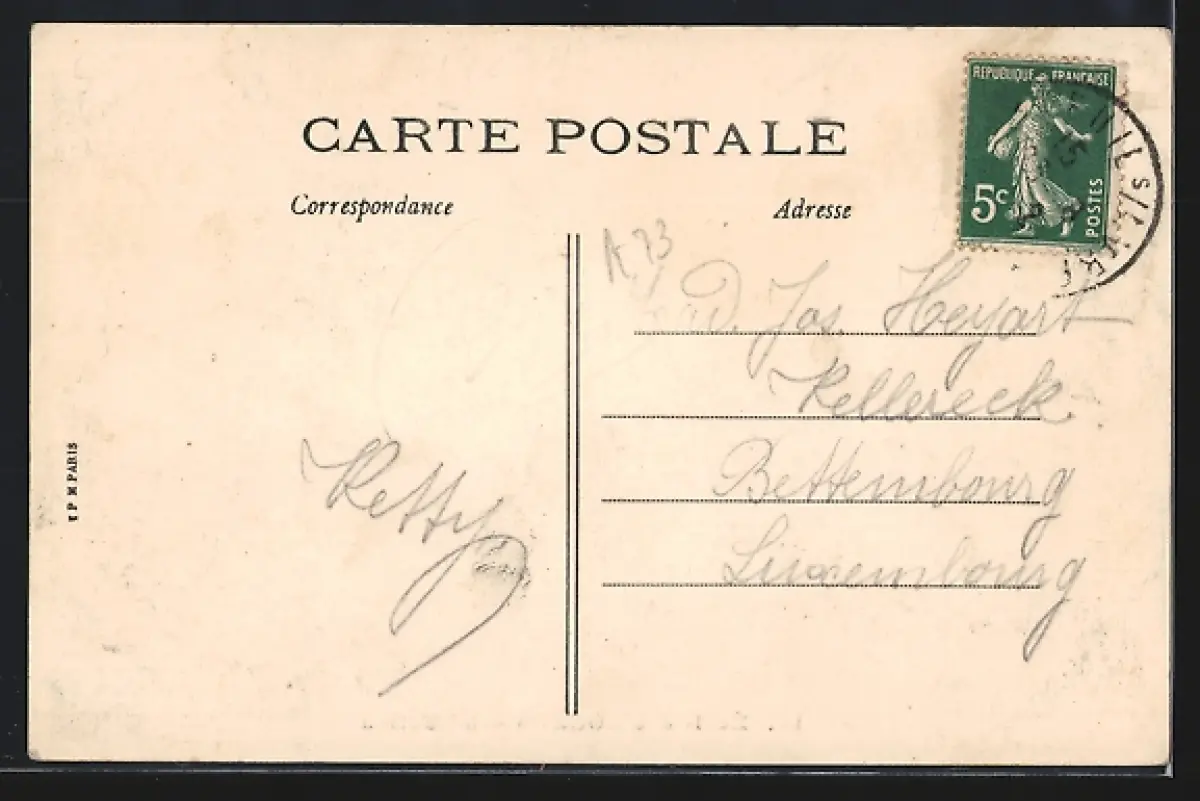 CARTE POSTALE
Correspondance
Adresse
REPUBLIQUE FRANÇAISE
5c
POSTES
K 73
d. Jos. Heyart
Kellereck
Bettembourg
Luxembourg
Ketty
E P M PARIS